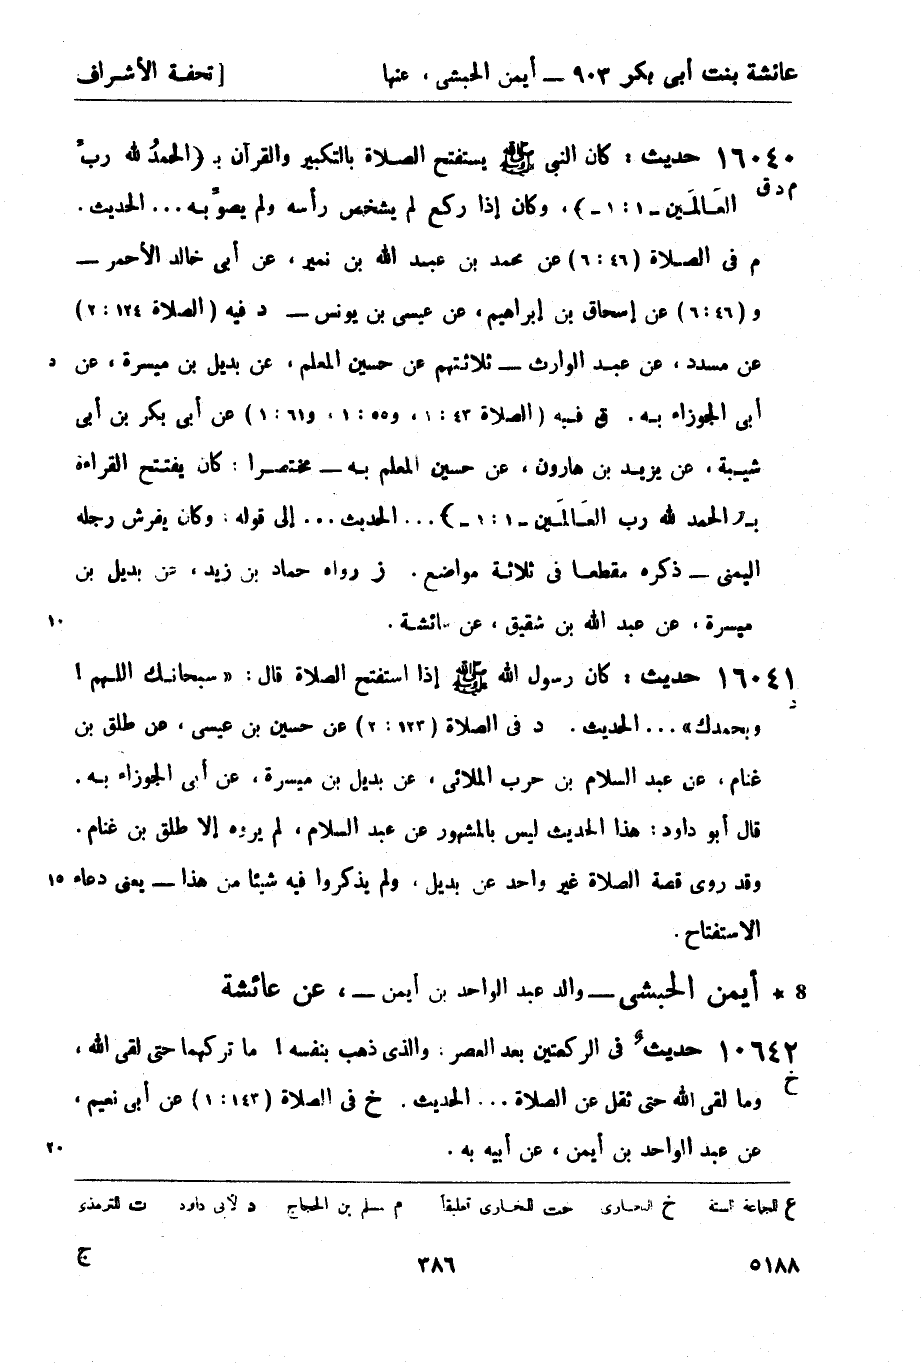 عائشة بنت أبى بكر ٩٠٣ — أيمن الحبشى ، عنها [ تحفة الأشراف
١٦٠٤٠ حديث : كان النبى ﷺ يستفتح الصلاة بالتكبير والقرآن بـ ﴿الحمدُ لله ربِّ
م د ق العَالَمَين ـ١ : ١ـ ﴾ ، وكان إذا ركع لم يشخص رأسه ولم يصوِّبه ... الحديث .
م فى الصلاة (٤٦ : ٦) عن محمد بن عبد الله بن نمير ، عن أبى خالد الأحمر —
و (٤٦ : ٦) عن إسحاق بن إبراهيم ، عن عيسى بن يونس — د فيه (الصلاة ١٢٤ : ٢)
عن مسدد ، عن عبد الوارث — ثلاثتهم عن حسين المعلم ، عن بديل بن ميسرة ، عن ٥
أبى الجوزاء به . ق فيه (الصلاة ٤٣ : ١ ، و٥٥ : ١ ، و٦١ : ١) عن أبى بكر بن أبى
شيبة ، عن يزيد بن هارون ، عن حسين المعلم به — مختصرا : كان يفتتح القراءة
بـ ﴿الحمد لله رب العَالَمَين ـ١ : ١ـ ﴾ ... الحديث ... إلى قوله : وكان يفرش رجله
اليمنى — ذكره مقطعا فى ثلاثة مواضع . ز رواه حماد بن زيد ، عن بديل بن
ميسرة ، عن عبد الله بن شقيق ، عن عائشة . ١٠
١٦٠٤١ حديث : كان رسول الله ﷺ إذا استفتح الصلاة قال : « سبحانك اللهم !
د وبحمدك» ... الحديث . د فى الصلاة (١٢٣ : ٢) عن حسين بن عيسى ، عن طلق بن
غنام ، عن عبد السلام بن حرب الملائى ، عن بديل بن ميسرة ، عن أبى الجوزاء به .
قال أبو داود : هذا الحديث ليس بالمشهور عن عبد السلام ، لم يروه إلا طلق بن غنام .
وقد روى قصة الصلاة غير واحد عن بديل ، ولم يذكروا فيه شيئا من هذا — يعنى دعاء ١٥
الاستفتاح .
8 * أيمن الحبشى — والد عبد الواحد بن أيمن — ، عن عائشة
١٠٦٤٢ حديث و فى الركعتين بعد العصر : والذى ذهب بنفسه ! ما تركهما حتى لقى الله ،
خ وما لقى الله حتى ثقل عن الصلاة ... الحديث . خ فى الصلاة (١٤٣ : ١) عن أبى نعيم ،
عن عبد الواحد بن أيمن ، عن أبيه به . ٢٠
ع للجماعة الستة خ البخارى خت للبخارى تعليقاً م مسلم بن الحجاج د لأبى داود ت للترمذى
٥١٨٨ ٣٨٦ ج